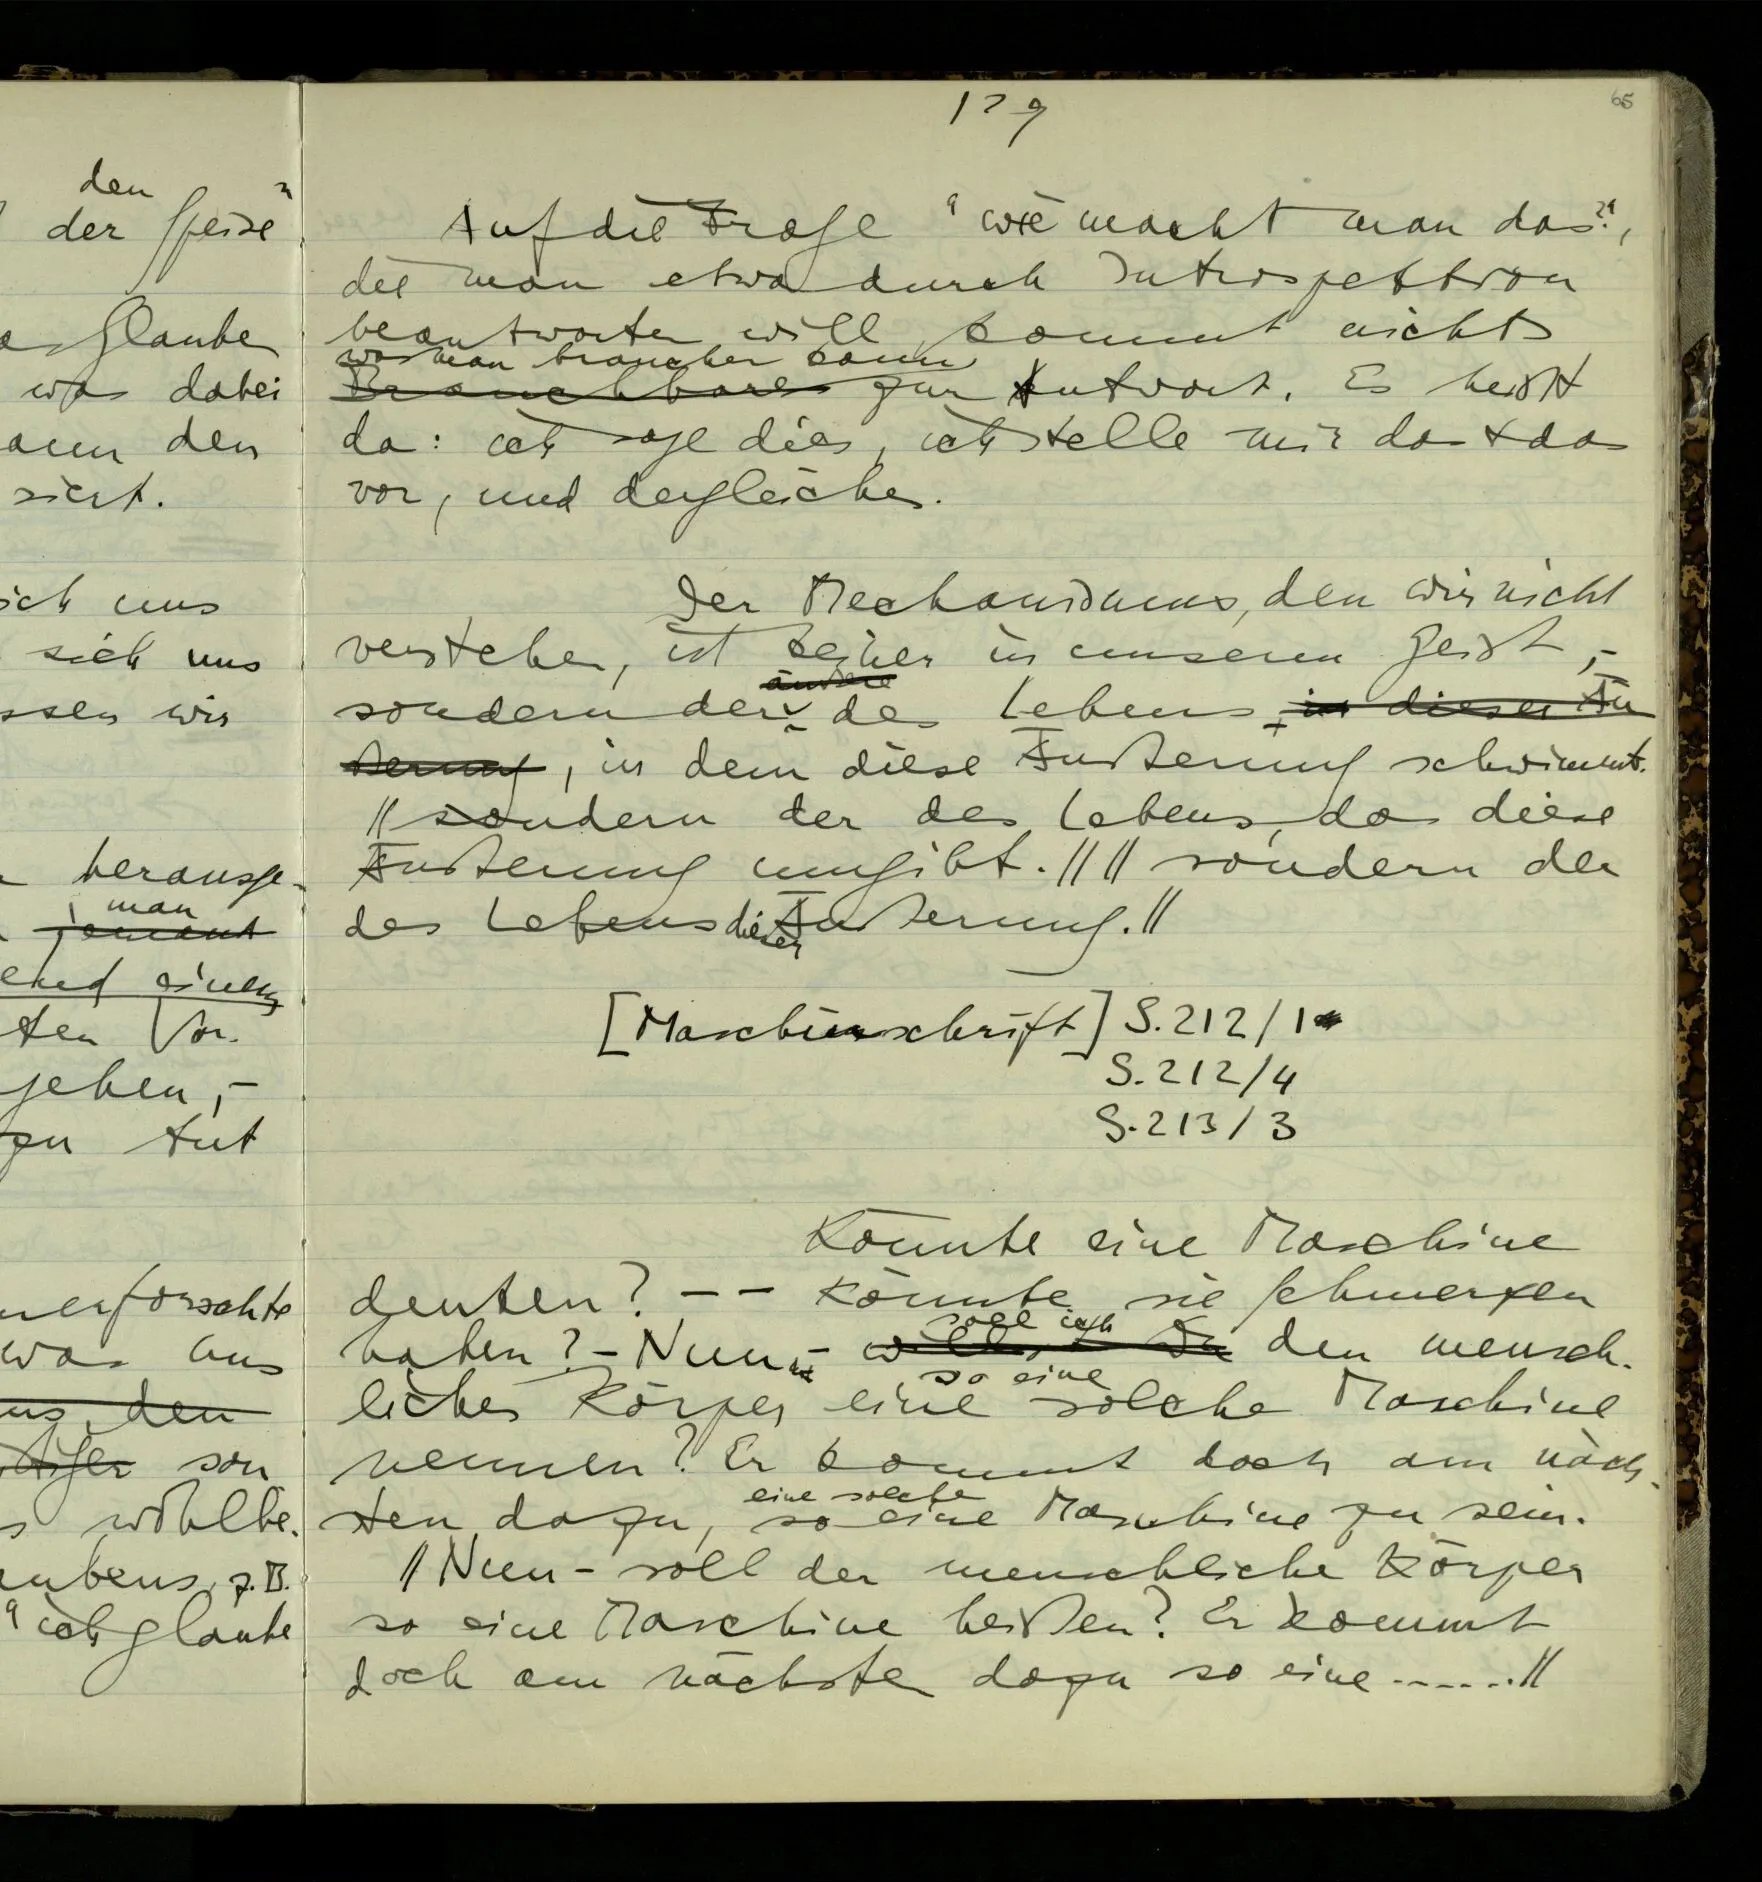 129
65
den
der Speise"
Glaube
was dabei
den
siert.
sich uns
sich uns
wir
herausge-
man
jemand
einem
ten Vor-
gehen,–
zu tut
unerforschte
was uns
uns, den
son
wohlbe-
Glaubens, z.B.
"ich glaube
Auf die Frage "wie macht man das?",
die man etwa durch Introspektion
beantworten will, kommt nichts
was man brauchen kann
Brauchbares zur Antwort. Es heißt
da: ich sage dies, ich stelle mir das + das
vor, und dergleichen.
Der Mechanismus, den wir nicht
verstehen, ist keiner in unserem Geist,–
sondern der des Lebens, in dieser Äu
ßerung, in dem diese Äußerung schwimmt.
// sondern der des Lebens, das diese
Äußerung umgibt. // // sondern der
des Lebens dieser Äußerung. //
[Maschinschrift] S.212/1
S.212/4
S.213/3
Könnte eine Maschine
denken? – – Könnte sie Schmerzen
soll ich
haben? – Nun, – willst Du den mensch-
so eine
lichen Körper eine solche Maschine
nennen? Er kommt doch am näch-
eine solche
sten dazu, so eine Maschine zu sein.
// Nun – soll der menschliche Körper
so eine Maschine heißen? Er kommt
doch am nächsten dazu so eine ....... //